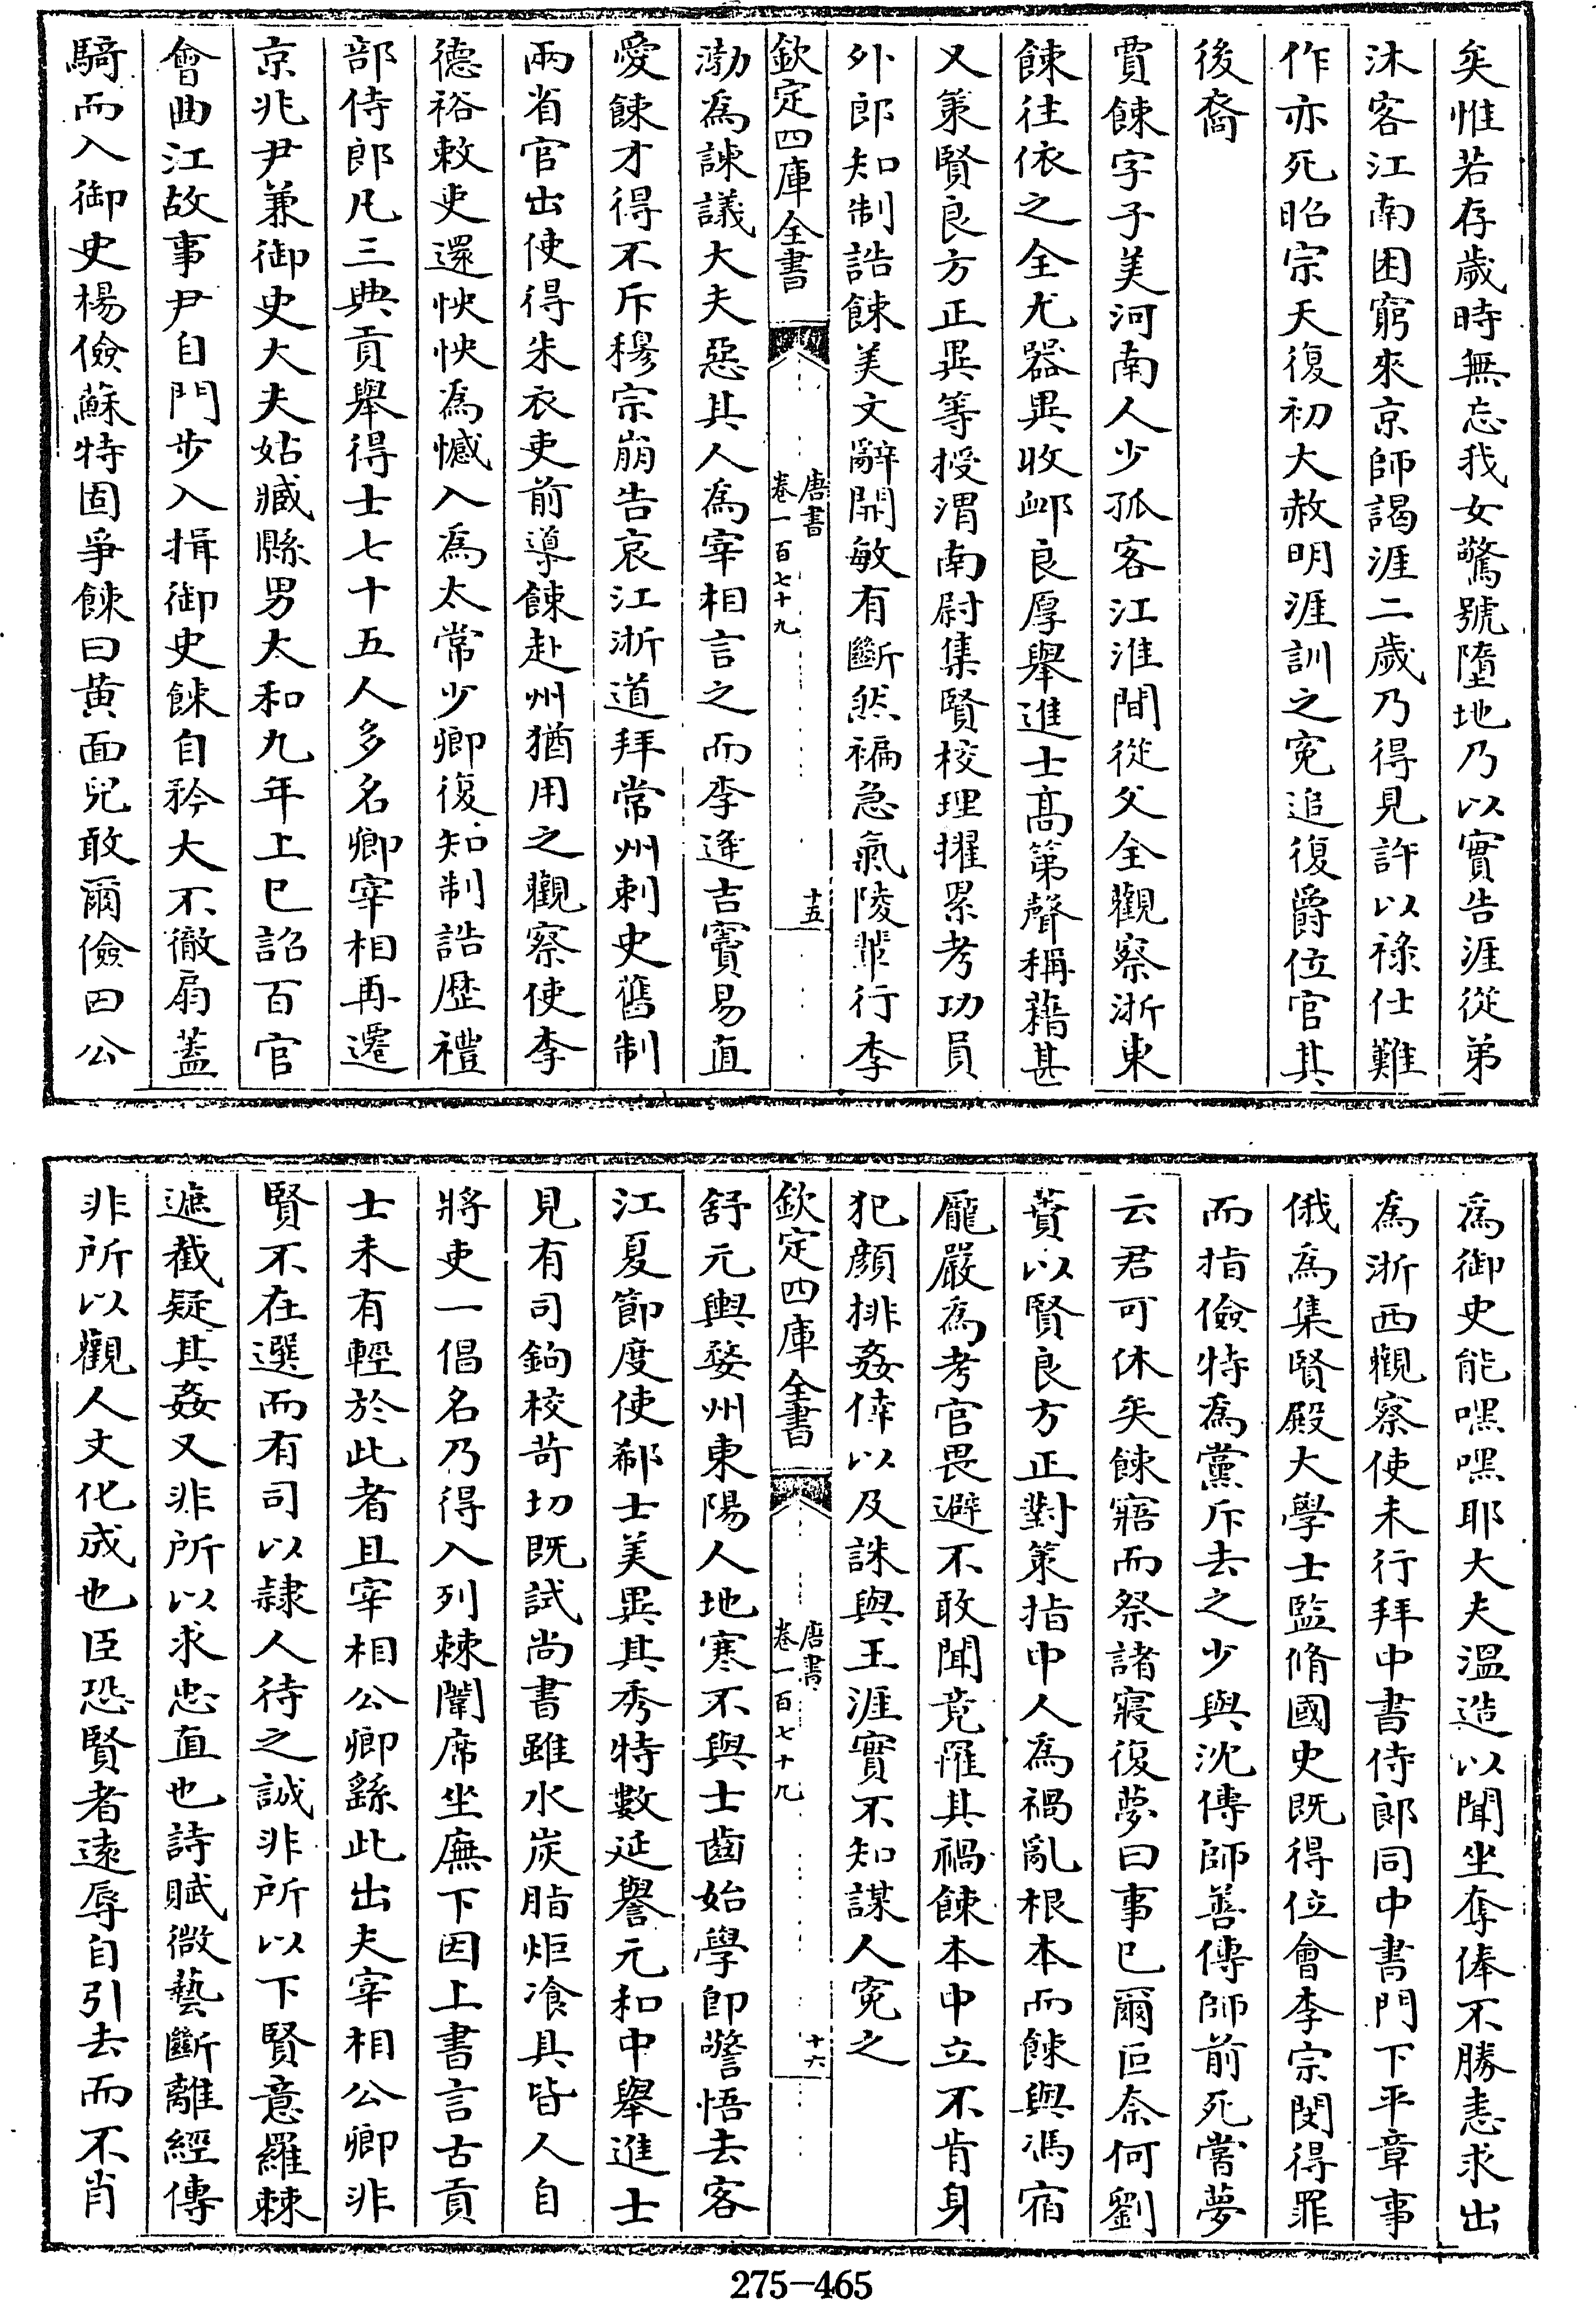 矣惟若存歲時無忘我女驚號墮地乃以實告涯從弟
沐客江南困窮來京師謁涯二歲乃得見許以祿仕難
作亦死昭宗天復初大赦明涯訓之寃追復爵位官其
後裔
賈餗字子美河南人少孤客江淮間從父全觀察浙東
餗往依之全尤器異收卹良厚舉進士髙第聲稱藉甚
又策賢良方正異等授渭南尉集賢校理擢累考功員
外郎知制誥餗美文辭開敏有斷然褊急氣陵輩行李
欽定四庫全書
唐書
卷一百七十九
十五
渤為諫議大夫惡其人為宰相言之而李逢吉竇易直
愛餗才得不斥穆宗崩告哀江浙道拜常州刺史舊制
兩省官出使得朱衣吏前導餗赴州猶用之觀察使李
德裕敕吏還怏怏為憾入為太常少卿復知制誥歴禮
部侍郎凡三典貢舉得士七十五人多名卿宰相再遷
京兆尹兼御史大夫姑臧縣男太和九年上巳詔百官
會曲江故事尹自門步入揖御史餗自矜大不徹扇蓋
騎而入御史楊儉蘇特固爭餗曰黄面兒敢爾儉曰公
為御史能嘿嘿耶大夫溫造以聞坐奪俸不勝恚求出
為浙西觀察使未行拜中書侍郎同中書門下平章事
俄為集賢殿大學士監脩國史既得位會李宗閔得罪
而指儉特為黨斥去之少與沈傳師善傳師前死嘗夢
云君可休矣餗寤而祭諸寢復夢曰事已爾叵奈何劉
蕡以賢良方正對策指中人為禍亂根本而餗與馮宿
龎嚴為考官畏避不敢聞竟罹其禍餗本中立不肯身
犯顔排姦倖以及誅與王涯實不知謀人寃之
欽定四庫全書
唐書
卷一百七十九
十六
舒元輿婺州東陽人地寒不與士齒始學即警悟去客
江夏節度使郗士美異其秀特數延譽元和中舉進士
見有司鉤校苛切既試尚書雖水炭脂炬飡具皆人自
將吏一倡名乃得入列棘闈席坐廡下因上書言古貢
士未有輕於此者且宰相公卿繇此出夫宰相公卿非
賢不在選而有司以隷人待之誠非所以下賢意羅棘
遮截疑其姦又非所以求忠直也詩賦微藝斷離經傳
非所以觀人文化成也臣恐賢者逺辱自引去而不肖
275-465